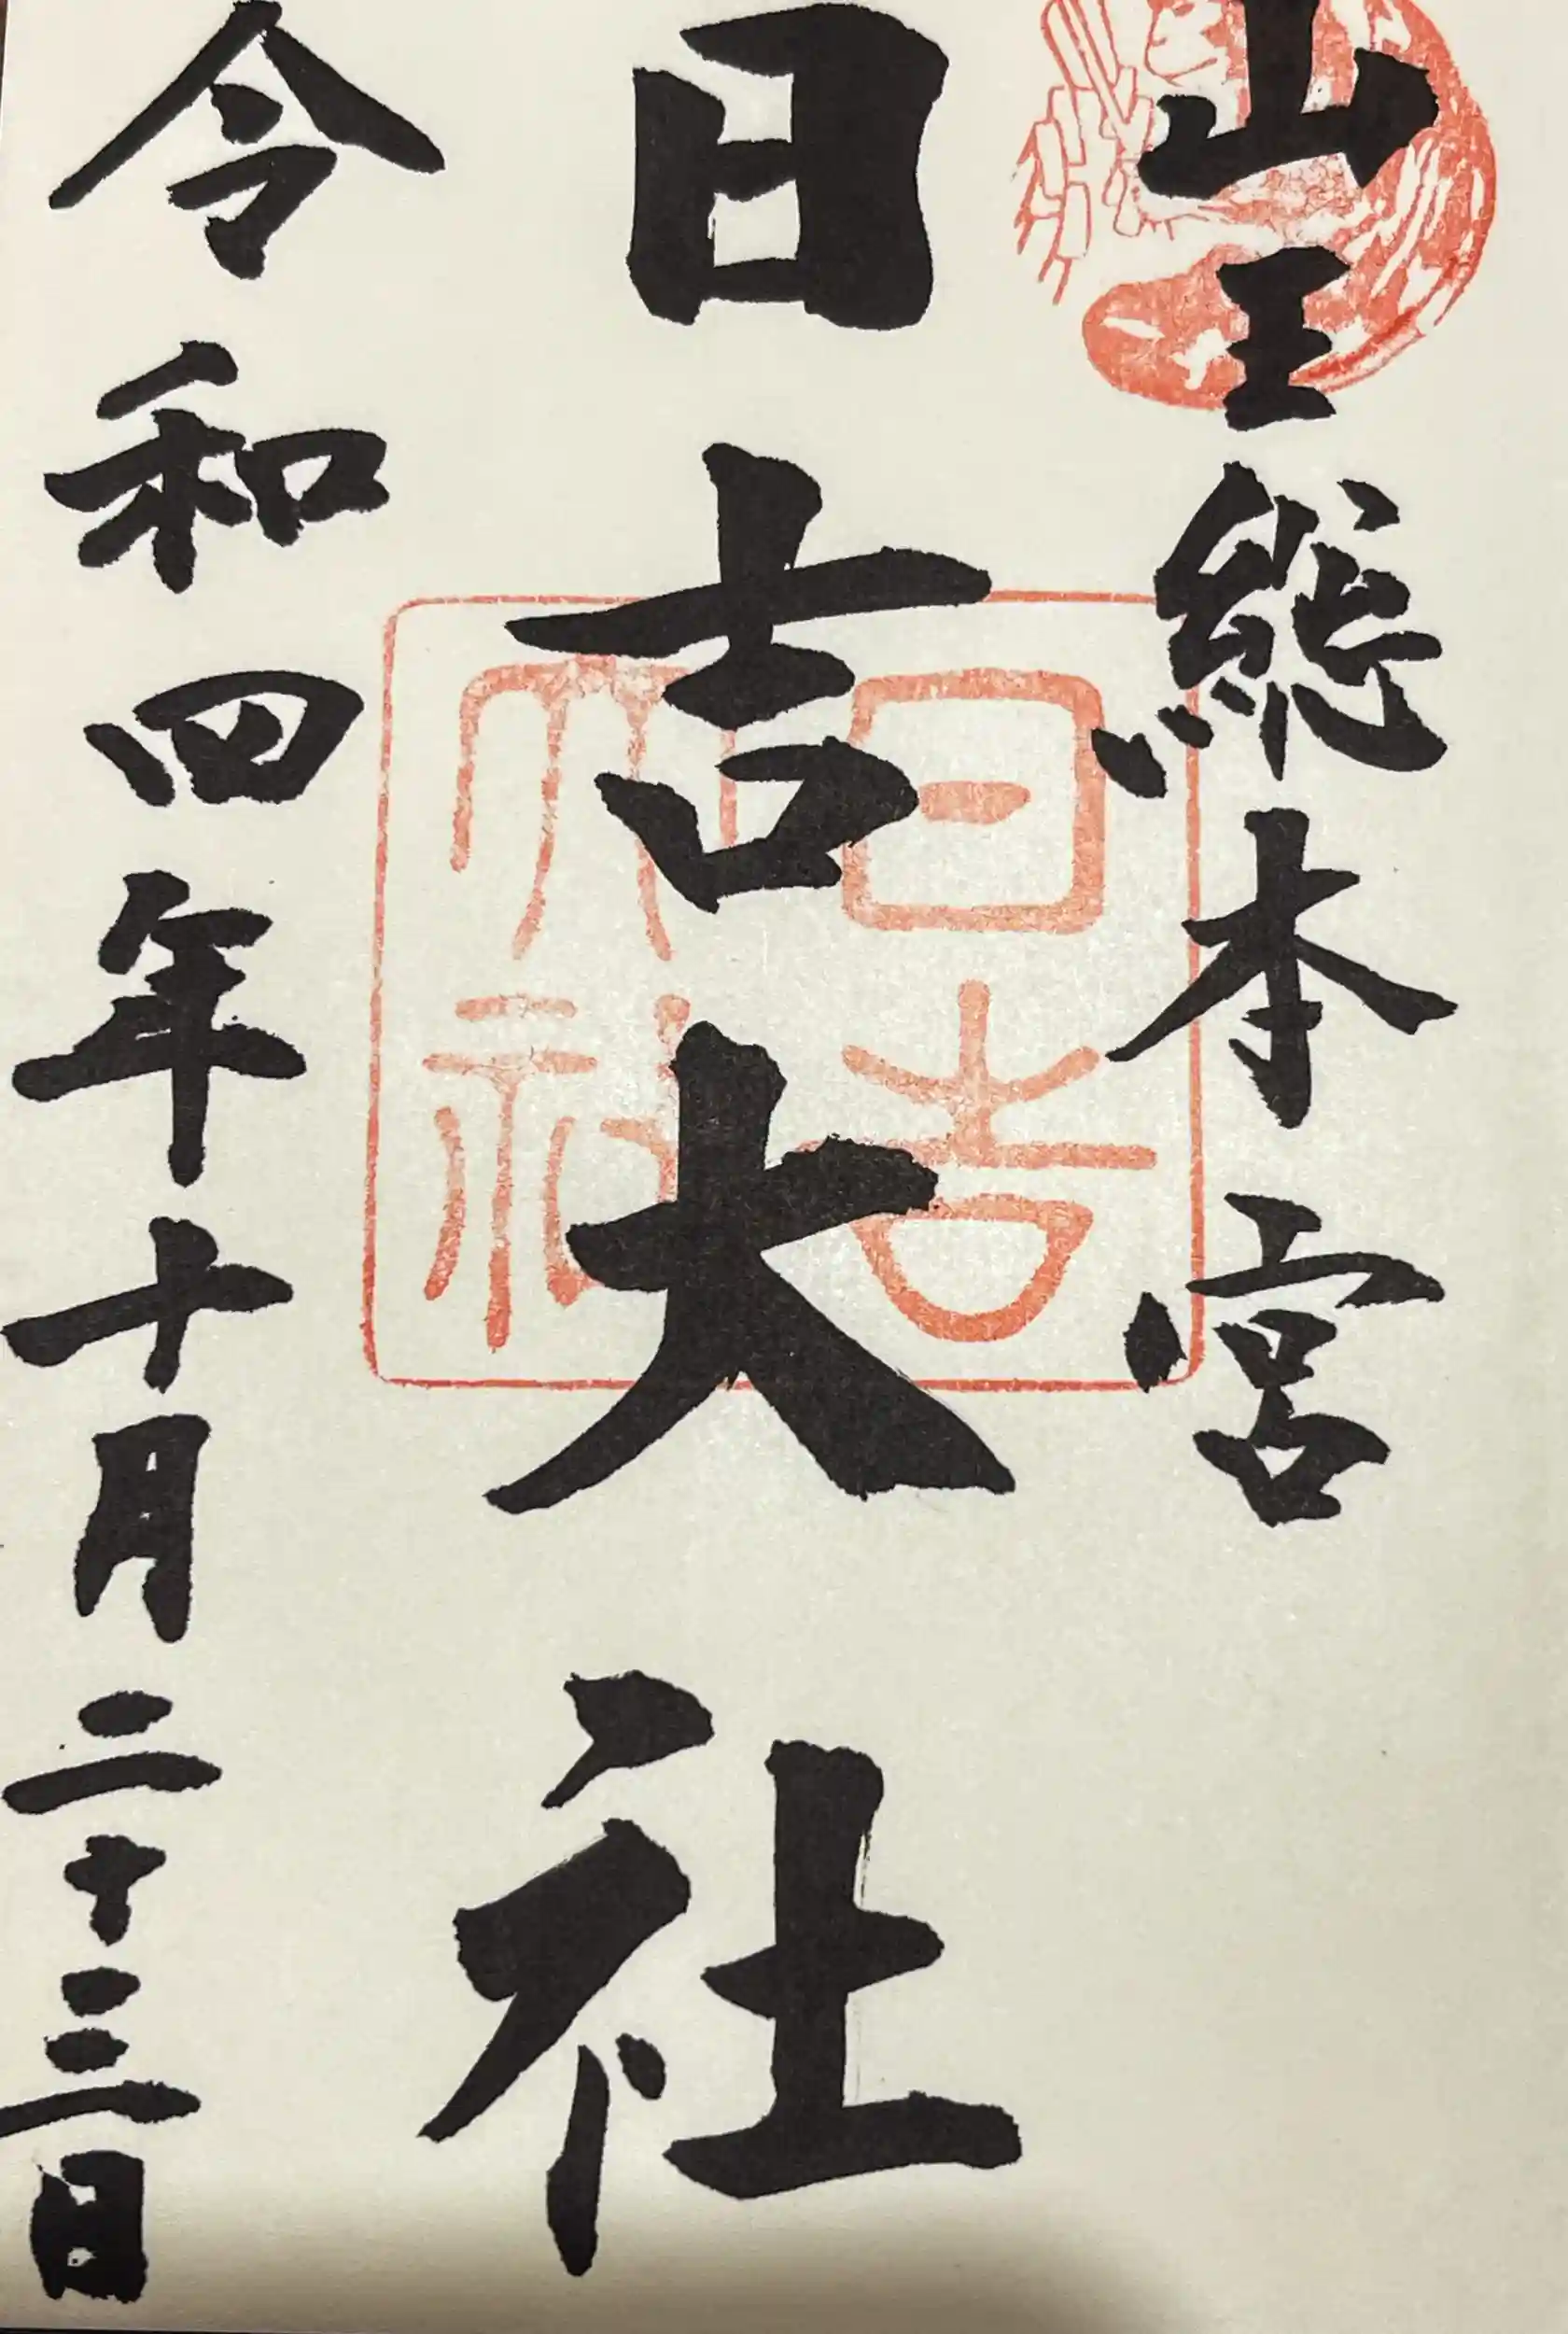 山王総本宮
日吉大社
令和四年十月二十三日
日吉
大社